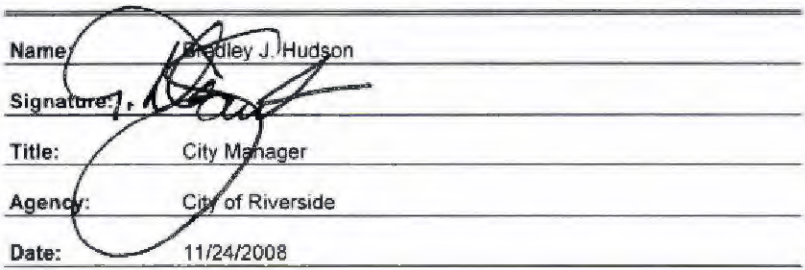 Name: Bradley J. Hudson
Signature:
Title: City Manager
Agency: City of Riverside
Date: 11/24/2008